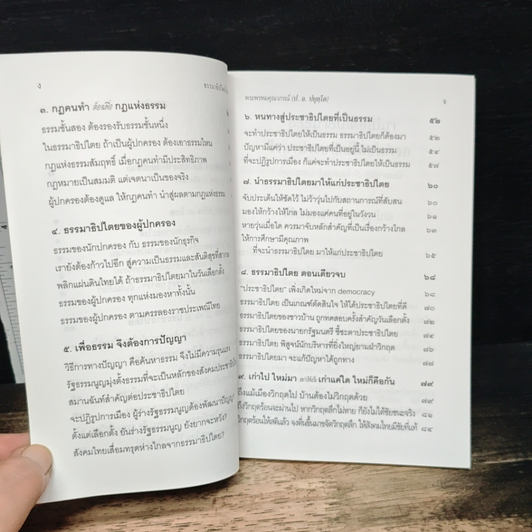 ง
๓. กฎคนทำ ต้องเพื่อ กฎแห่งธรรม
ธรรมชั้นสอง ต้องรองรับธรรมชั้นหนึ่ง
ในธรรมาธิปไตย ถ้าเป็นผู้ปกครอง ต้องเอาธรรมไหน
กฎแห่งธรรมสัมฤทธิ์ เมื่อกฎคนทำมีประสิทธิภาพ
กฎหมายเป็นสมมติ แต่เจตนาเป็นของจริง
ผู้ปกครองต้องดูแล ให้กฎคนทำ นำสู่ผลตามกฎแห่งธรรม
๔. ธรรมาธิปไตยของผู้ปกครอง
ธรรมของนักปกครอง กับ ธรรมของนักธุรกิจ
เรายังต้องก้าวไปอีก สู่ความเป็นธรรมและสันติสุขที่
พลิกแผ่นดินไทยได้ ถ้าธรรมาธิปไตยมาในวันเลือกตั้ง
ธรรมของผู้ปกครอง ทุกแห่งมองหาทั้งนั้น
ธรรมของผู้ปกครอง ตามครรลองราชประเพณีไทย
๕. เพื่อธรรม จึงต้องการปัญญา
วิธีการทางปัญญา คือค้นหาธรรม จึงไม่มีความรุนแรง
รัฐธรรมนูญมุ่งตั้งธรรมที่จะเป็นหลักของสังคมประชาธิป
สมานฉันท์สำคัญต่อประชาธิปไตย
จะปฏิรูปการเมือง ผู้ร่างรัฐธรรมนูญต้องพัฒนาปัญญา
ตั้งแต่เลือกตั้ง ยันร่างรัฐธรรมนูญ ยังยากจะหวัง?
สังคมไทยเสื่อมทรุดห่างไกลจากธรรมาธิปไตย?
พระพรหมคุณาภรณ์ (ป. อ. ปยุตฺโต)
๖. หนทางสู่ประชาธิปไตยที่เป็นธรรม ๕๒
จะทำประชาธิปไตยให้เป็นธรรม ธรรมาธิปไตยก็ต้องมา ๕๒
ปัญหามีแค่ว่า ประชาธิปไตย ที่เป็นอยู่นี้ ไม่เป็นธรรม ๕๔
ที่จะปฏิรูปการเมือง ก็แค่จะทำประชาธิปไตยให้เป็นธรรม ๕๗
๗. นำธรรมาธิปไตยมาให้แก่ประชาธิปไตย ๖๐
จับประเด็นให้ชัดไว้ ไม่ว้าวุ่นไปกับสถานการณ์ที่สับสน
มองให้กว้างให้ไกล ไม่มองแค่คนที่อยู่ในวังวน
หายวุ่นเมื่อใด ควรมาจับหลักสำคัญที่เป็นเรื่องกว้างไกล
ให้การศึกษามีคุณภาพ
ที่จะนำธรรมาธิปไตย มาให้แก่ประชาธิปไตย ๖๕
๘. ธรรมาธิปไตย ตอนเดียวจบ ๖๘
"ประชาธิปไตย" เพิ่งเกิดใหม่จาก democracy ๖๘
ธรรมาธิปไตย เป็นเกณฑ์ตัดสินใจ ให้ได้ประชาธิปไตยที่ดี
ธรรมาธิปไตยของชาวบ้าน ถูกทดสอบครั้งสำคัญวันเลือกตั้ง
ธรรมาธิปไตยของนายกรัฐมนตรี ชี้ชะตาประชาธิปไตย
ธรรมาธิปไตย พิสูจน์นักบริหารที่ยิ่งใหญ่ยามฝ่าวิกฤต
ธรรมาธิปไตยมา จะแก้ปัญหาได้ถูกทาง
๙. เก่าไป ใหม่มา เก่าแต่ใด ใหม่ก็คือกัน ๗๙
ถึงแม้เมืองวิกฤตไป บ้านต้องไม่วิกฤตด้วย ๗๙